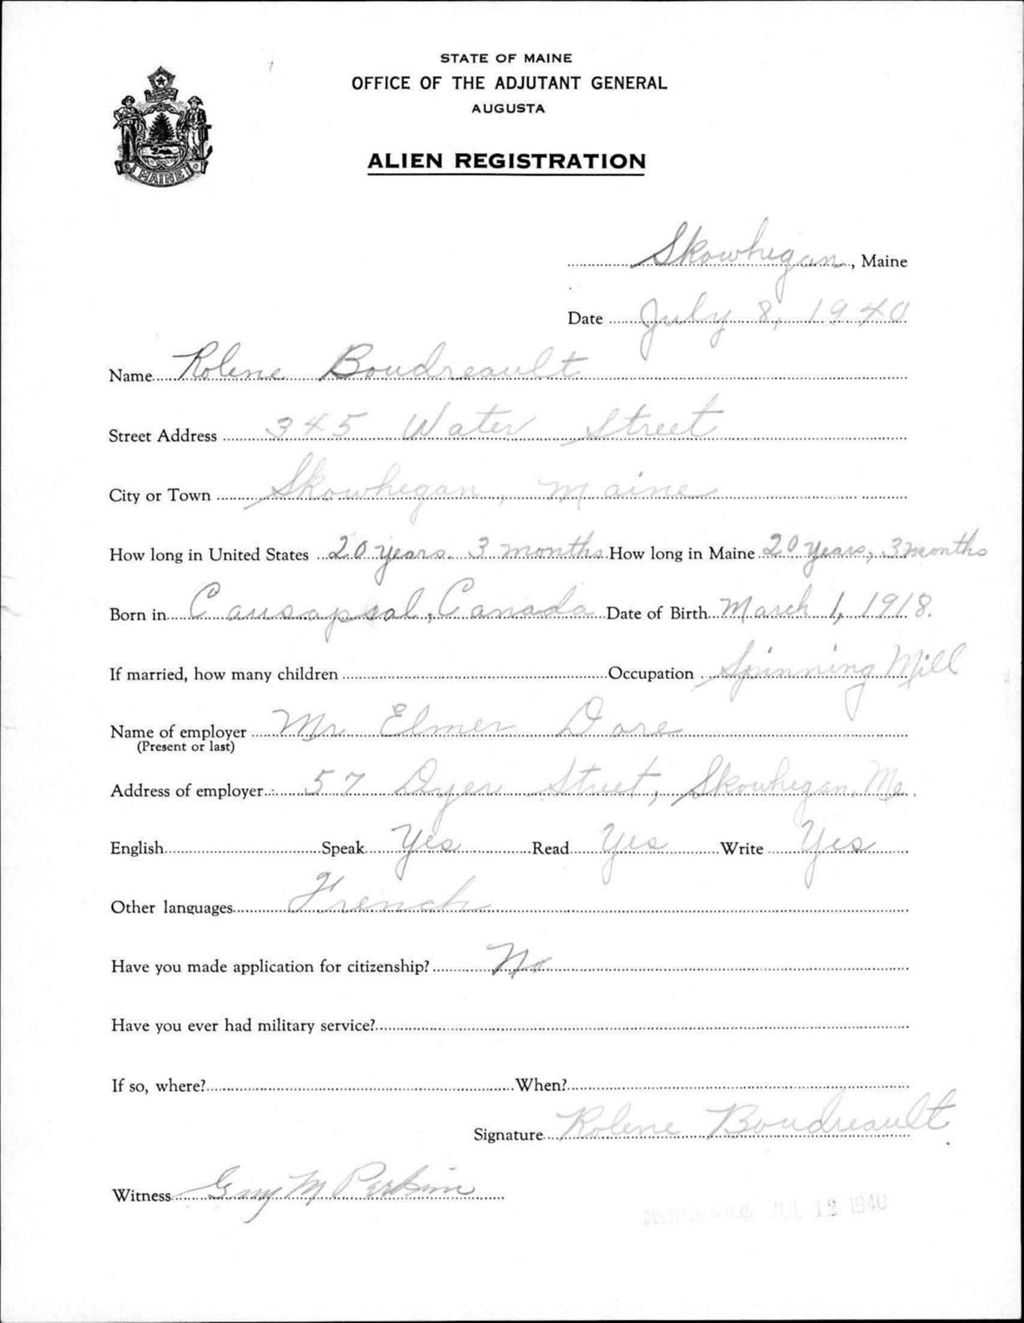 STATE OF MAINE
OFFICE OF THE ADJUTANT GENERAL
AUGUSTA
MAINE
ALIEN REGISTRATION
Skowhegan, Maine
Date July 8, 1940
Name Rolene Boudreault
Street Address 345 Water Street
City or Town Skowhegan, Maine
How long in United States 20 years 3 months How long in Maine 20 years, 3 months
Born in Causapscal, Canada Date of Birth March 1, 1918.
If married, how many children Occupation Spinning Mill
Name of employer Mr. Elmer Dore
(Present or last)
Address of employer 57 Dyer Street, Skowhegan, Me.
English Speak Yes Read Yes Write Yes
Other languages French
Have you made application for citizenship? No
Have you ever had military service?
If so, where? When?
Signature Rolene Boudreault
Witness Guy M Perkins
JUL 12 1940